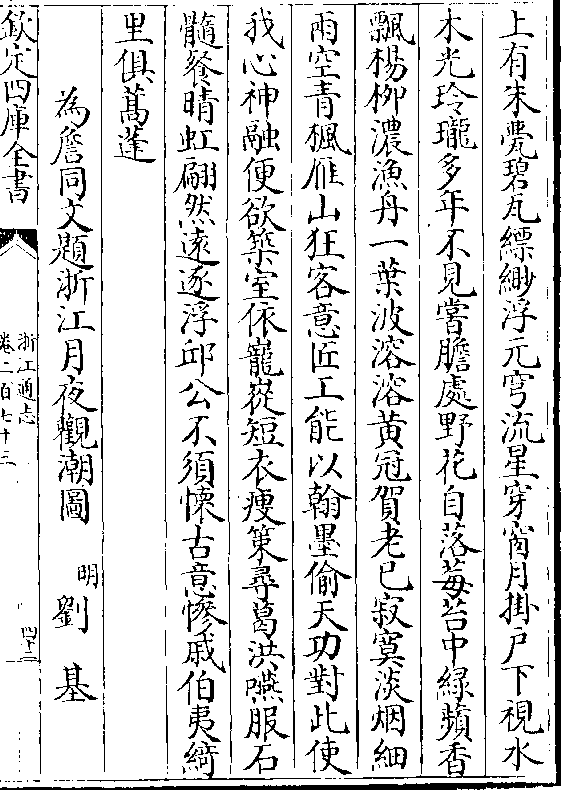 上有朱甍碧瓦縹緲浮元穹流星穿窗月掛戶下視水
木光玲瓏多年不見嘗膽處野花自落莓苔中綠蘋香
飄楊柳濃漁舟一葉波溶溶黃冠賀老已寂寞淡烟細
雨空青楓雁山狂客意匠工能以翰墨偷天功對此使
我心神融便欲築室依巃嵸短衣瘦策尋葛洪嚥服石
髓餐晴虹翩然遠逐浮邱公不須懐古意慘戚伯夷綺
里俱蒿蓬
為詹同文題浙江月夜觀潮圖 明劉基
欽定四庫全書
浙江通志
卷二百七十三